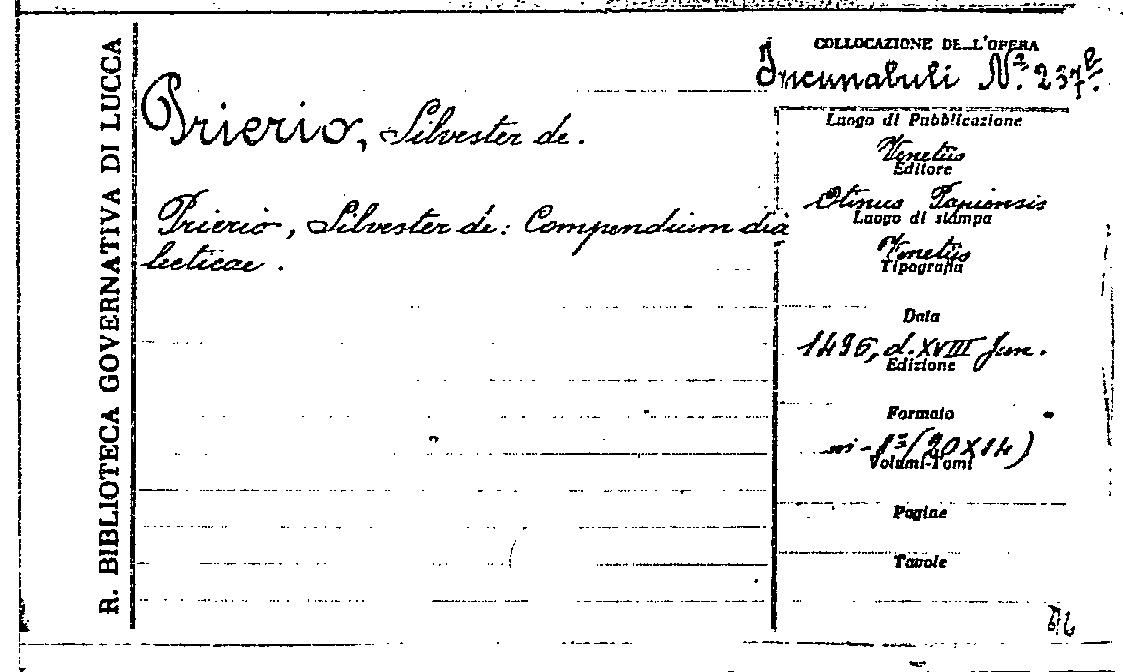 R. BIBLIOTECA GOVERNATIVA DI LUCCA
COLLOCAZIONE DELL'OPERA
Incunabuli N.º 237 b.
Prierio, Silvester de.
Prierio, Silvester de: Compendium dia
lecticae.
Luogo di Pubblicazione
Venetiis
Editore
Otinus Papiensis
Luogo di stampa
Venetiis
Tipografia
Data
1496, d. XVIII Jun.
Edizione
Formato
(20 X 14)
Volumi-Tomi
Pagine
Tavole